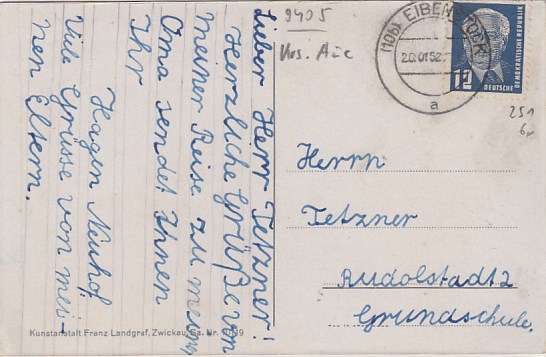 Lieber Herr Tetzner!
Herzliche Grüße von
meiner Reise zu meiner
Oma sendet Ihnen
Ihr
Hagen Neuhof
Viele Grüsse von mei-
nen Eltern.
Kunstanstalt Franz Landgraf, Zwickau, Sa. Nr.
9405
Krs. Aue
(10b) EIBENSTOCK
20.01.52
a
12
DEUTSCHE
DEMOKRATISCHE REPUBLIK
251
Herrn
Tetzner
Rudolstadt 2
Grundschule.